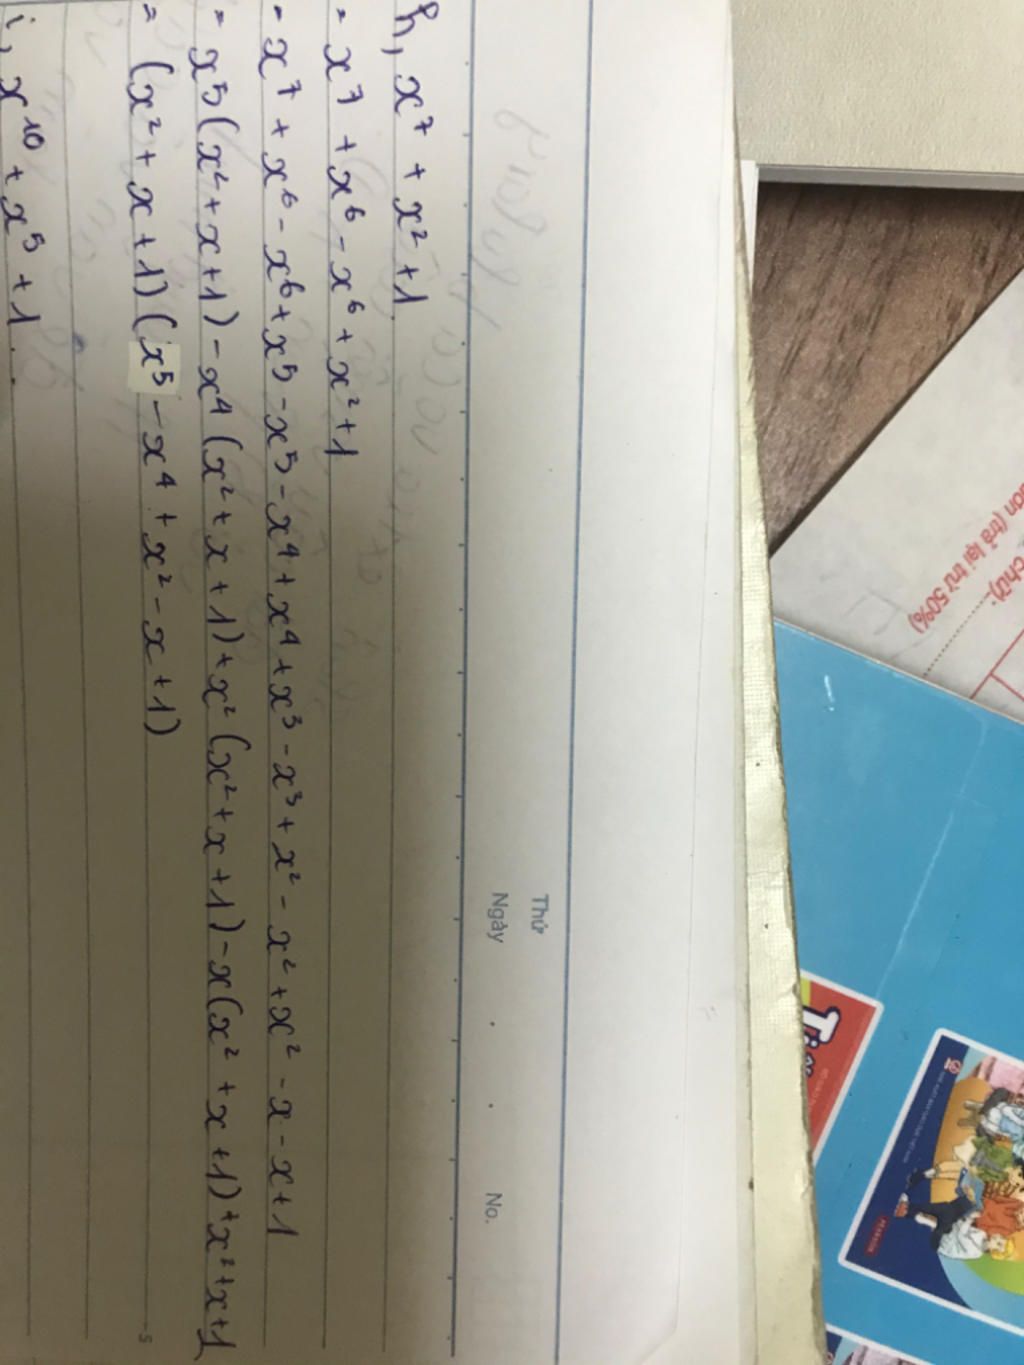 Thứ
Ngày . . No.
h, x⁷ + x² + 1
= x⁷ + x⁶ - x⁶ + x² + 1
= x⁷ + x⁶ - x⁶ + x⁵ - x⁵ - x⁴ + x⁴ + x³ - x³ + x² - x² + x² - x - x + 1
= x⁵(x² + x + 1) - x⁴(x² + x + 1) + x²(x² + x + 1) - x(x² + x + 1) + x² + x + 1
= (x² + x + 1)(x⁵ - x⁴ + x² - x + 1)
i, x¹⁰ + x⁵ + 1
5
(trả lại trừ 50%)
chữ):
PEARSON